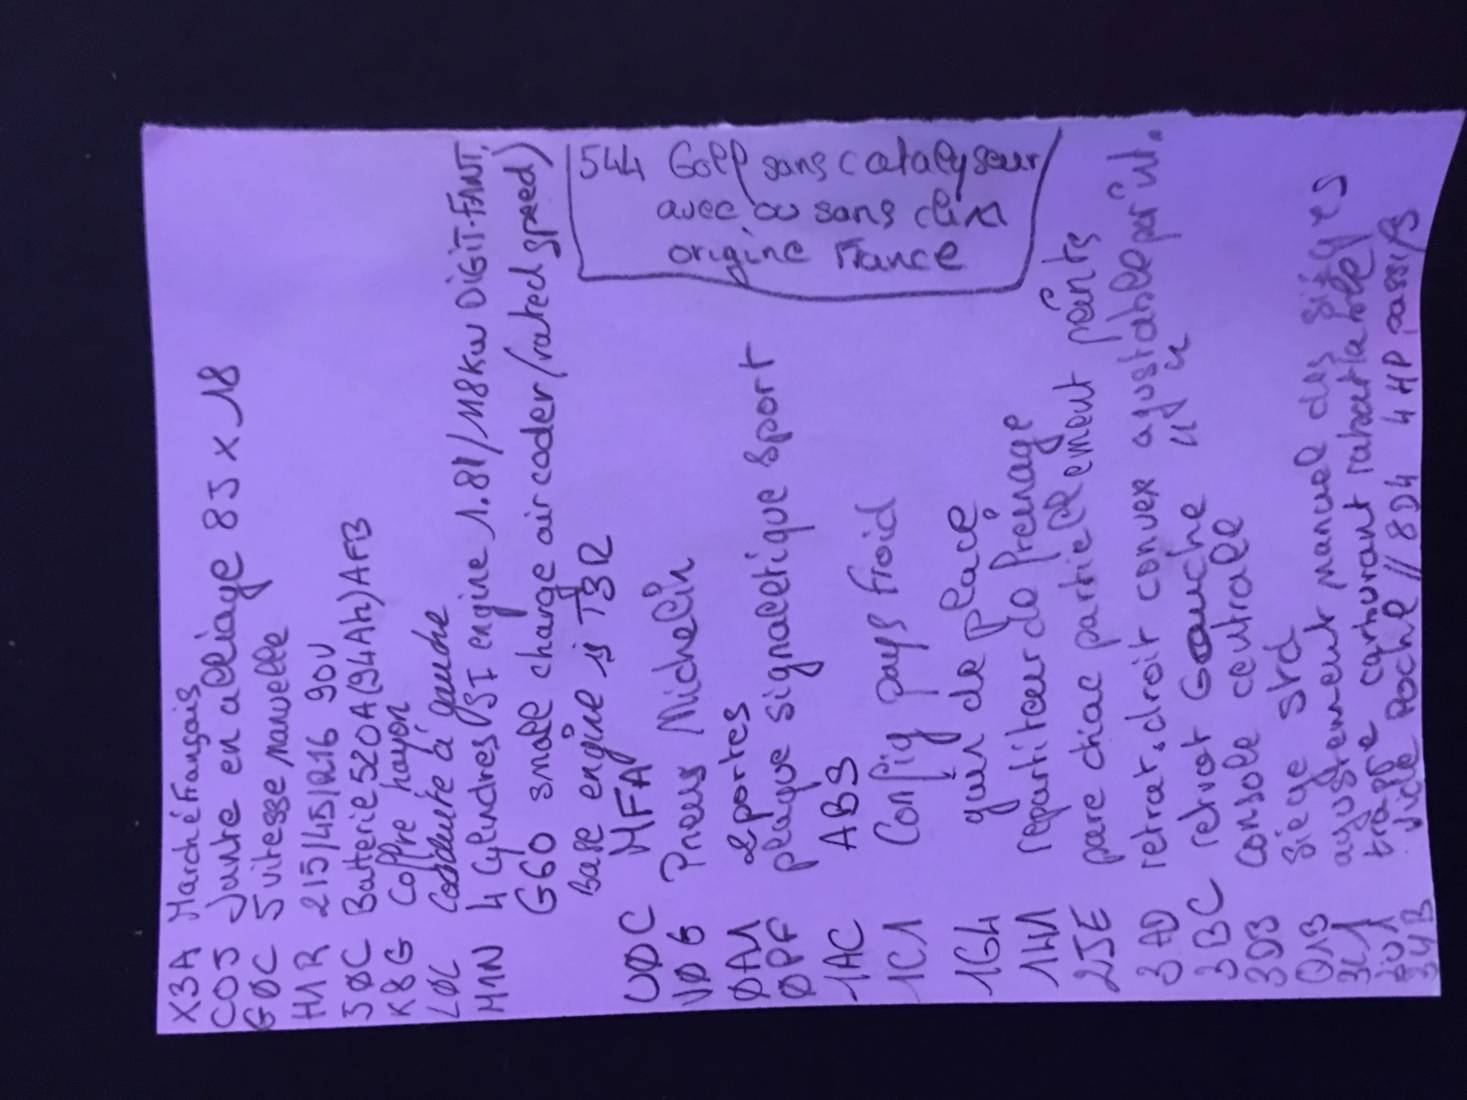 X3A Marché Français
C0J Jante en alliage 8J x 18
G0C 5 vitesse manuelle
H1R 215/45/R16 90V
J0C Batterie 520A (94Ah) AFB
K8G Coffre hayon
L0L Conduite à gauche
M1N 4 Cylindres SI engine 1.8l/118kw DIGIFANT.
G60 small charge air cooler/(rated speed)
Base engine is T3R
U0C MFA
V06 Pneus Michelin
0A1 2 portes
0PF plaque signaletique sport
1AC ABS
1C1 Config pays froid
1G4 de place
1M1 repartiteur de freinage
2JE pare choc partiellement peints
3AD retrat. droit convex ajustable par int.
3BC retrot Gauche " "
3D3 Console centrale
Q1B Siege Std
3L1 ajustement manuel des sièges
trappe carburant rabattable
34B vide Poche // 8D4 4 HP passifs
544 Golf sans catalyseur
avec ou sans clim
origine France